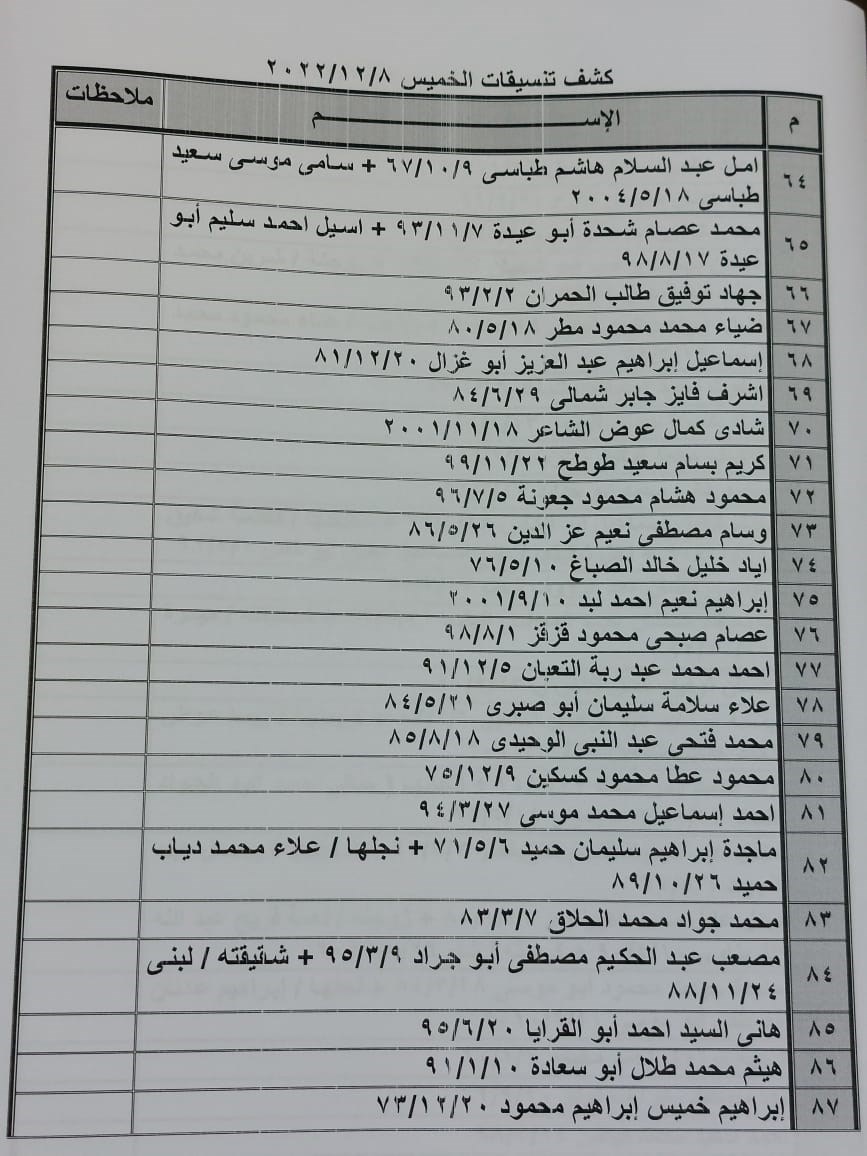 كشف تنسيقات الخميس ٢٠٢٢/١٢/٨
م الإســـــــــــــــــــــم ملاحظات
٦٤ امل عبد السلام هاشم طباسى ٦٧/١٠/٩ + سامى موسى سعيد
طباسى ٢٠٠٤/٥/١٨
٦٥ محمد عصام شحدة أبو عيدة ٩٣/١١/٧ + اسيل احمد سليم أبو
عيدة ٩٨/٨/١٧
٦٦ جهاد توفيق طالب الحمران ٩٣/٢/٢
٦٧ ضياء محمد محمود مطر ٨٠/٥/١٨
٦٨ إسماعيل إبراهيم عبد العزيز أبو غزال ٨١/١٢/٢٠
٦٩ اشرف فايز جابر شمالى ٨٤/٦/٢٩
٧٠ شادى كمال عوض الشاعر ٢٠٠١/١١/١٨
٧١ كريم بسام سعيد طوطح ٩٩/١١/٢٢
٧٢ محمود هشام محمود جعونة ٩٦/٧/٥
٧٣ وسام مصطفى نعيم عز الدين ٨٦/٥/٢٦
٧٤ اياد خليل خالد الصباغ ٧٦/٥/١٠
٧٥ إبراهيم نعيم احمد لبد ٢٠٠١/٩/١٠
٧٦ عصام صبحى محمود قزقز ٩٨/٨/١
٧٧ احمد محمد عبد ربة التعبان ٩١/١٢/٥
٧٨ علاء سلامة سليمان أبو صبرى ٨٤/٥/٢١
٧٩ محمد فتحى عبد النبى الوحيدى ٨٥/٨/١٨
٨٠ محمود عطا محمود كسكين ٧٥/١٢/٩
٨١ احمد إسماعيل محمد موسى ٩٤/٣/٢٧
٨٢ ماجدة إبراهيم سليمان حميد ٧١/٥/٦ + نجلها / علاء محمد دياب
حميد ٨٩/١٠/٢٦
٨٣ محمد جواد محمد الحلاق ٨٣/٣/٧
٨٤ مصعب عبد الحكيم مصطفى أبو جراد ٩٥/٣/٩ + شقيقته / لبنى
٨٨/١١/٢٤
٨٥ هانى السيد احمد أبو القرايا ٩٥/٦/٢٠
٨٦ هيثم محمد طلال أبو سعادة ٩١/١/١٠
٨٧ إبراهيم خميس إبراهيم محمود ٧٣/١٢/٢٠